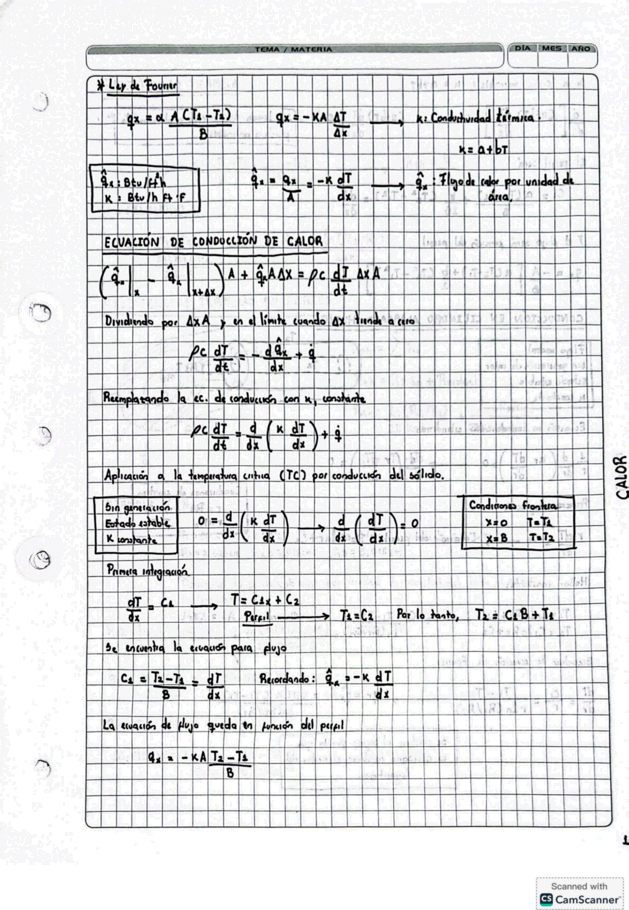 TEMA / MATERIA
DÍA MES AÑO
* Ley de Fourier
qx = α A(T1 - T2) / B    qx = -KA ΔT/Δx → K: Conductividad térmica.
K = a + bT
q̂x : Btu/ft²h
K : Btu/h ft °F
q̂x = qx/A = -K dT/dx → q̂x : Flujo de calor por unidad de área.
ECUACIÓN DE CONDUCCIÓN DE CALOR
(q̂x|x - q̂x|x+Δx) A + q̇ A Δx = ρc dT/dt Δx A
Dividiendo por ΔxA y en el límite cuando Δx tiende a cero
ρc dT/dt = - dq̂x/dx + q̇
Reemplazando la ec. de conducción con K, constante
ρc dT/dt = d/dx (K dT/dx) + q̇
Aplicación a la temperatura critica (TC) por conducción del sólido.
Sin generación
Estado estable
K constante
0 = d/dx (K dT/dx) → d/dx (dT/dx) = 0
Condiciones frontera
x=0 T=T1
x=B T=T2
Primera integración
dT/dx = C1 → T = C1x + C2
Perfil → T1 = C2 Por lo tanto, T2 = C1B + T1
Se encuentra la ecuación para flujo
C1 = T2 - T1 / B = dT/dx    Recordando: q̂x = -K dT/dx
La ecuación de flujo queda en función del perfil
qx = -KA T2 - T1 / B
CALOR
1
Scanned with
CS CamScanner